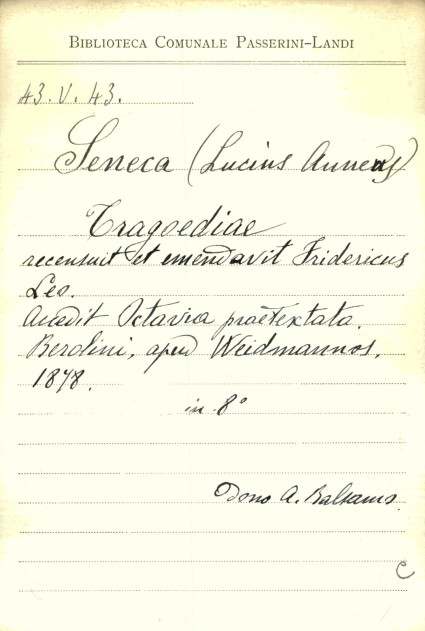 BIBLIOTECA COMUNALE PASSERINI-LANDI
43. V. 43.
Seneca (Lucius Annaeus)
Tragoediae
recensuit et emendavit Fridericus
Leo.
Accedit Octavia praetextata.
Berolini, apud Weidmannos,
1878.
in 8°
Dono A. Balsamo.
C